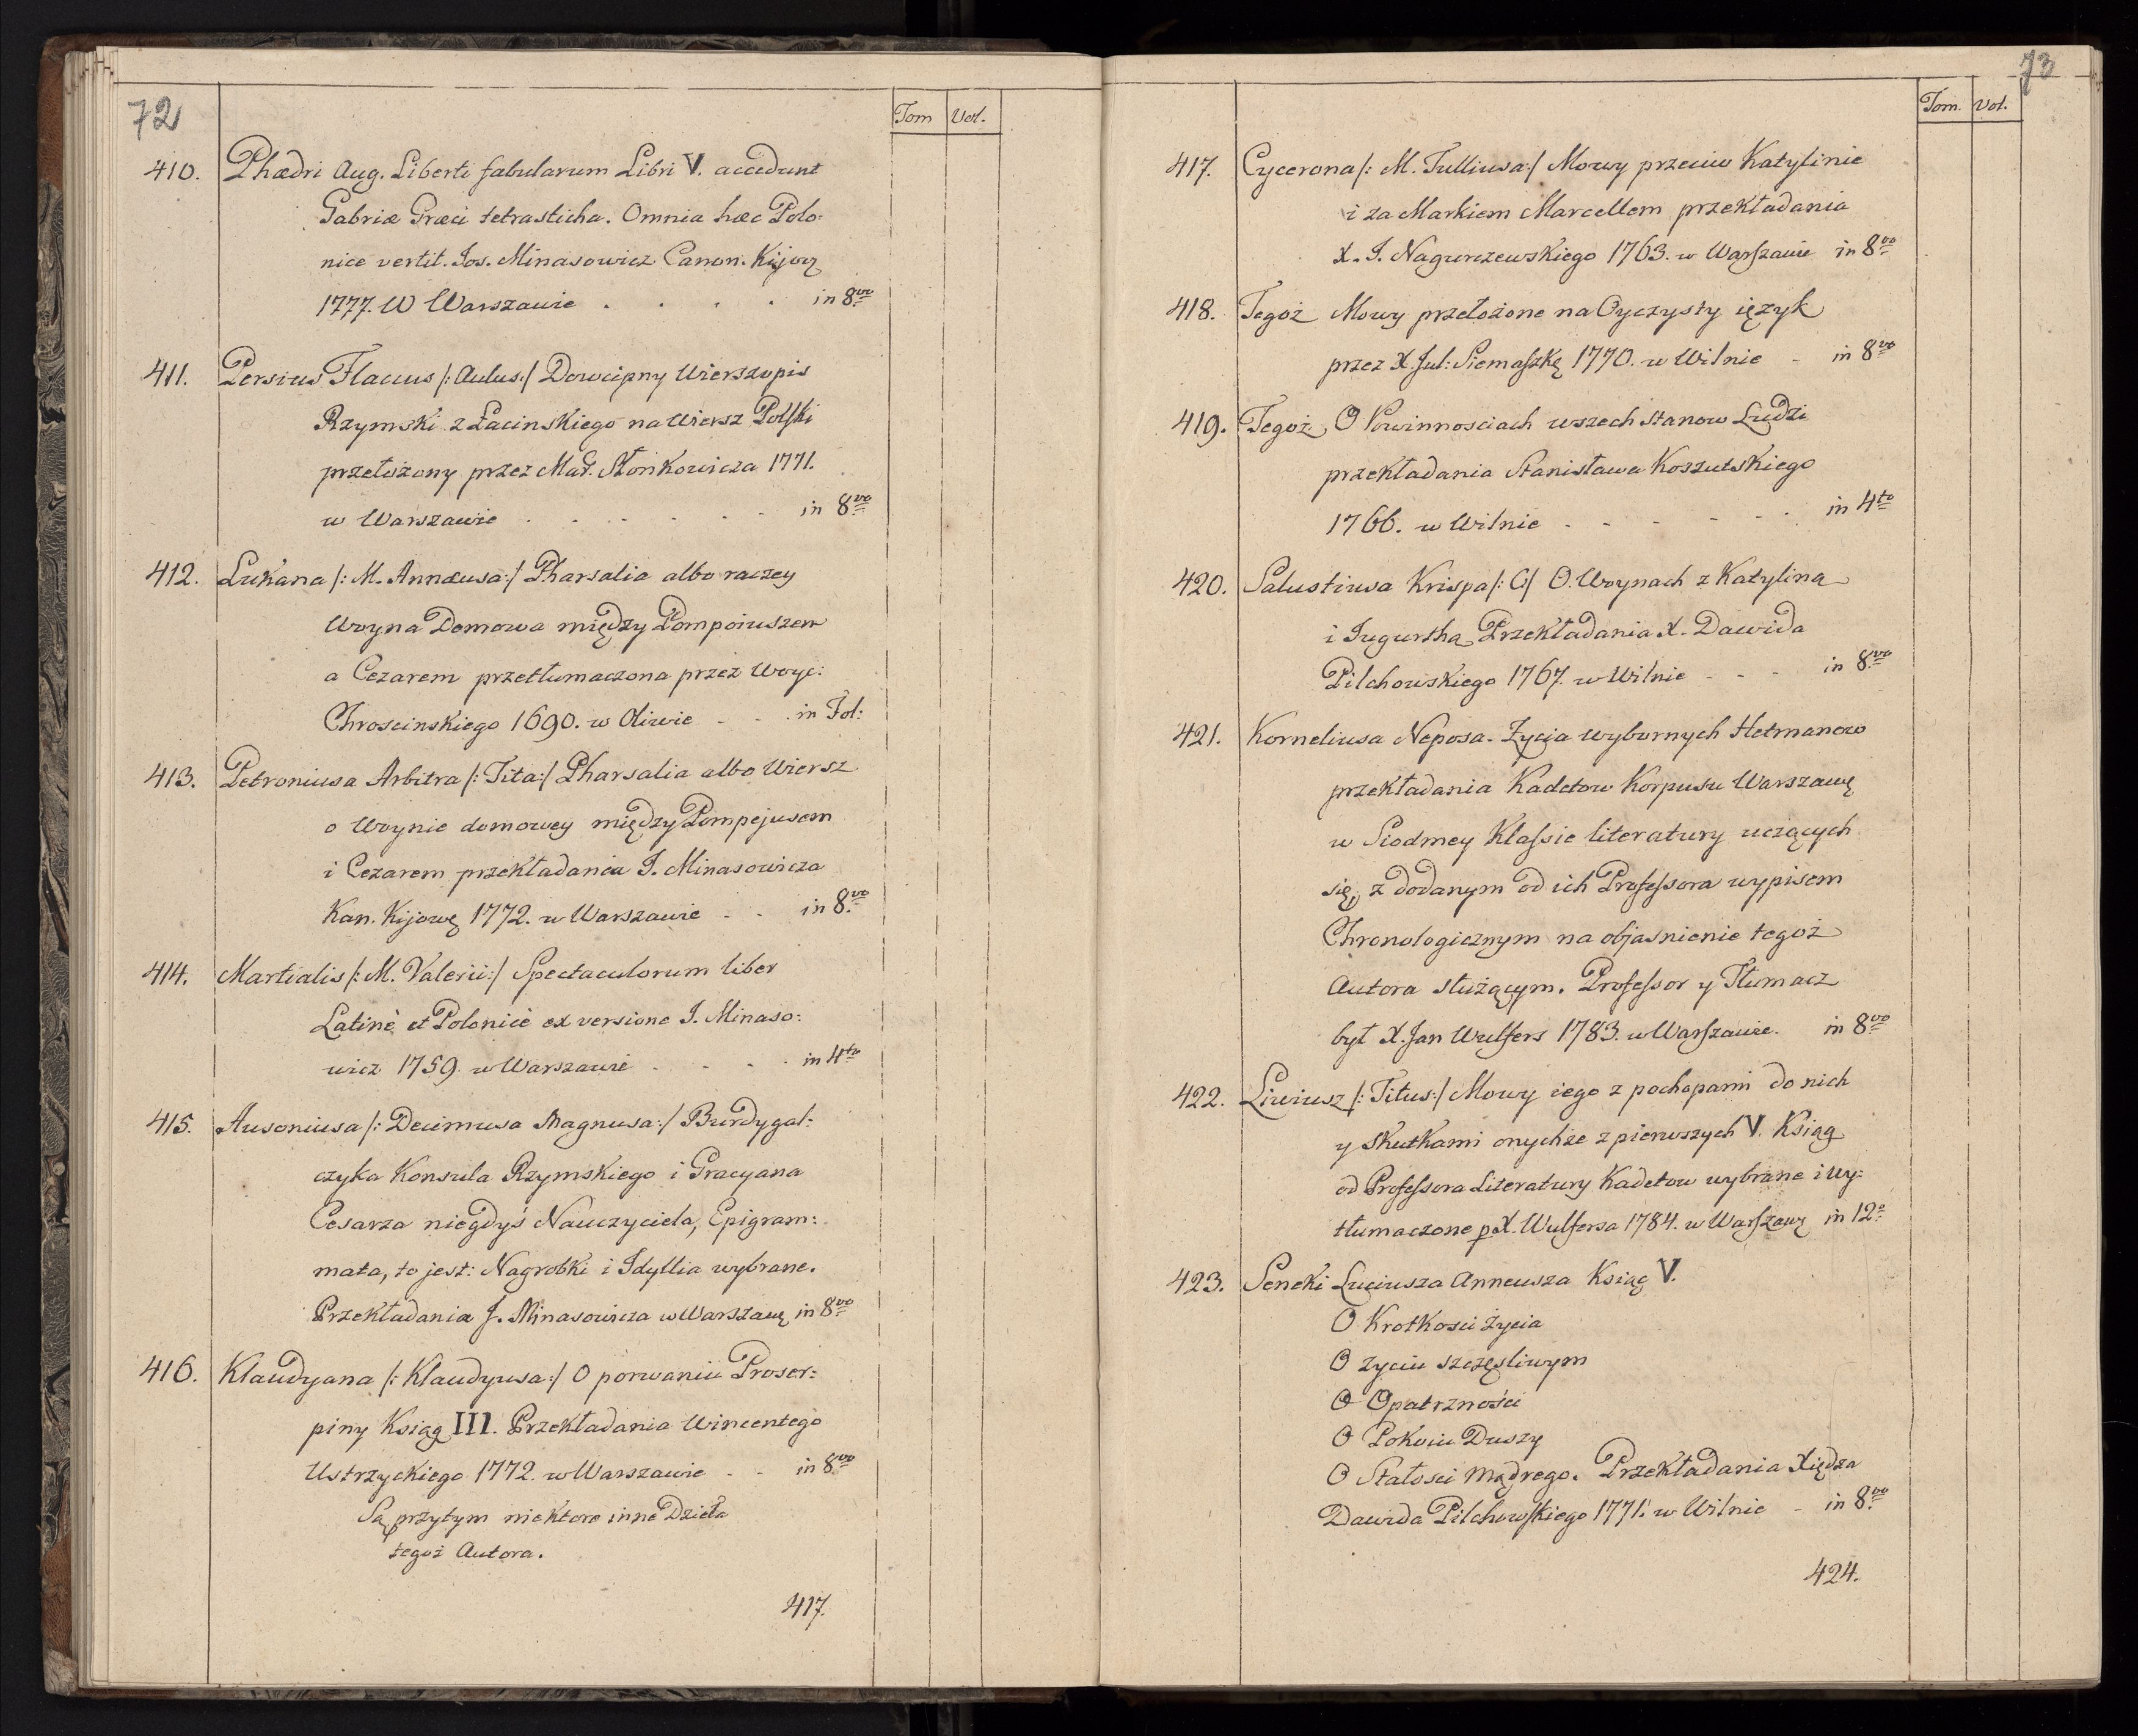 72
Tom Vol.
410. Phædri Aug. Liberti fabularum Libri V. accedunt
Gabriæ Græci tetrasticha. Omnia hæc Polo:
nice vertit. Ios. Minasowicz Canon. Kijow
1777. W Warszawie . . . . in 8vo
411. Persius Flacus /: Aulus:/ Dowcipny Wierszopis
Rzymski z Łacinskiego na Wiersz Polski
przełożony przez Mat. Słonkowicza 1771.
w Warszawie . . . . . . in 8vo
412. Lukana /: M. Annæusa:/ Pharsalia albo raczey
Woyna Domowa między Pompoiuszem
a Cezarem przetłumaczona przez Woyc:
Chroscinskiego 1690. w Oliwie - - . in Fol:
413. Petroniusa Arbitra /: Tita:/ Pharsalia albo Wiersz
o Woynie domowey między Pompejusem
i Cezarem przekładania J. Minasowicza
Kan. Kijowę 1772. w Warszawie - - in 8vo
414. Martialis /: M. Valerii:/ Spectaculorum liber
Latinè et Polonicè ex versione J. Minaso:
wicz 1759. w Warszawie . . . . in 4to
415. Ausoniusa /: Decimusa Magnusa:/ Burdygal:
czyka Konsula Rzymskiego i Gracyana
Cesarza niegdyś Nauczyciela, Epigram:
mata, to jest: Nagrobki i Idyllia wybrane.
Przekładania J. Minasowicza w Warszawę in 8vo
416. Klaudyana /: Klaudyusa:/ O porwaniu Proser:
piny Ksiąg III. Przekładania Wincentego
Ustrzyckiego 1772. w Warszawie - - in 8vo
Są przytym niektore inne Dzieła
tegoż Autora.
417.
73
Tom. Vol.
417. Cycerona /: M. Tulliusa:/ Mowy przeciw Katylinie
i za Markiem Marcellem przekładania
X. I. Nagurczewskiego 1763. w Warszawie in 8vo
418. Tegoż Mowy przełożone na Oyczysty ięzyk
przez X. Jul: Siemaszkę 1770. w Wilnie - in 8vo
419. Tegoż, O Powinnosciach wszech stanow Ludzi
przekładania Stanisława Koszutskiego
1766. w Wilnie - - - - - . in 4to
420. Salustiusa Krispa /: C/ O. Woynach z Katyliną
i Iugurthą Przekładania X. Dawida
Pilchowskiego 1767. w Wilnie - - - in 8vo
421. Korneliusa Neposa. Życia wybornych Hetmanow
przekładania Kadetow Korpusu Warszawę
w Siodmey Klassie literatury uczących
się, z dodanym od ich Professora wypisem
Chronologicznym na objasnienie tegoż
Autora służącym. Professor y Tłumacz
był X. Jan Wulfers 1783. w Warszawie. in 8vo
422. Liwiusz /: Titus:/ Mowy iego z pochopami do nich
y skutkami onychże z pierwszych V. Ksiąg
od Professora Literatury Kadetow wybrane i wy:
tłumaczone p. X. Wulfersa 1784. w Warszawę in 12o
423. Seneki Luciusza Anneusza Ksiąg V.
O Krotkosci życia
O życiu szczęsliwym
O Opatrzności
O Pokoiu Duszy
O Stałosci Mądrego. Przekładania Xiędza
Dawida Pilchowskiego 1771. w Wilnie - in 8vo
424.